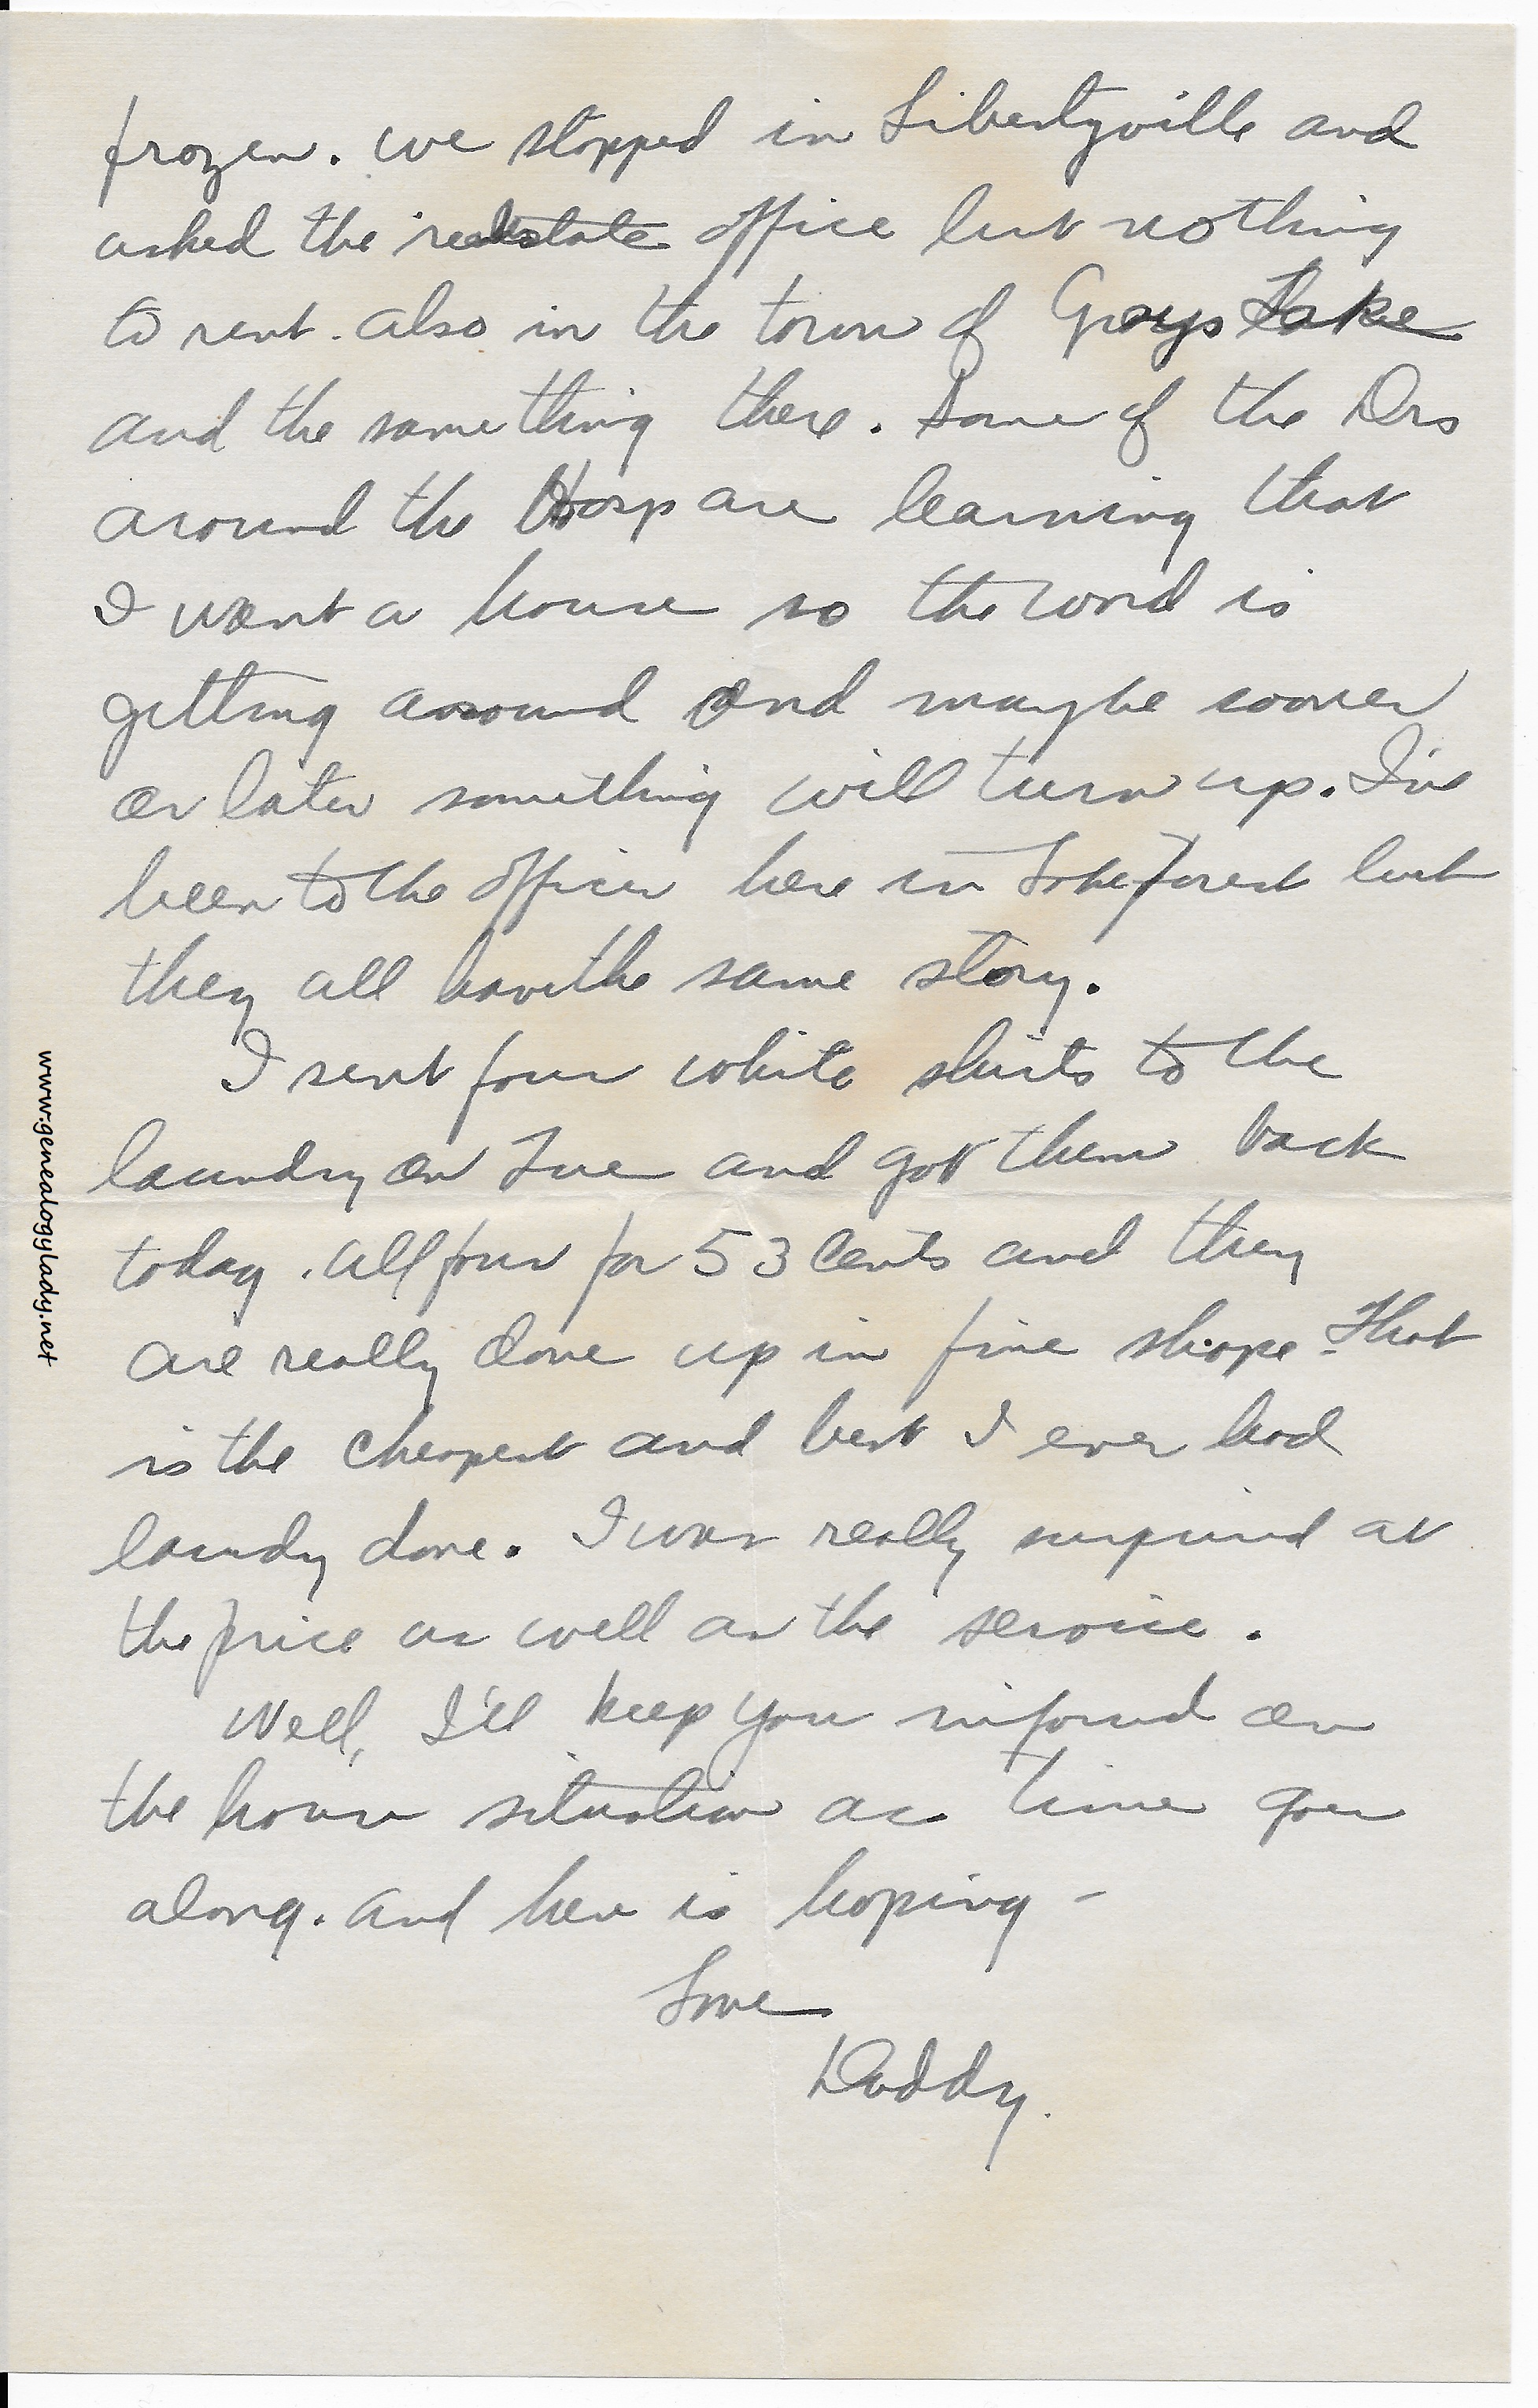 frozen. we stopped in Libertyville and
asked the realestate office but nothing
to rent. also in the town of Grays Lake
and the same thing there. Some of the Drs
around the Hosp are learning that
I want a house so the word is
getting around and maybe sooner
or later something will turn up. I've
been to the offices here in Lake Forest but
they all have the same story.
I sent four white shirts to the
laundry on Tue and got them back
today. all four for 53 cents and they
are really done up in fine shape. That
is the cheapest and best I ever had
laundy done. I was really surprised at
the price as well as the service.
Well, I'll keep you informed on
the house situation as time goes
along. and here is hoping -
Love
Daddy.
www.genealogylady.net